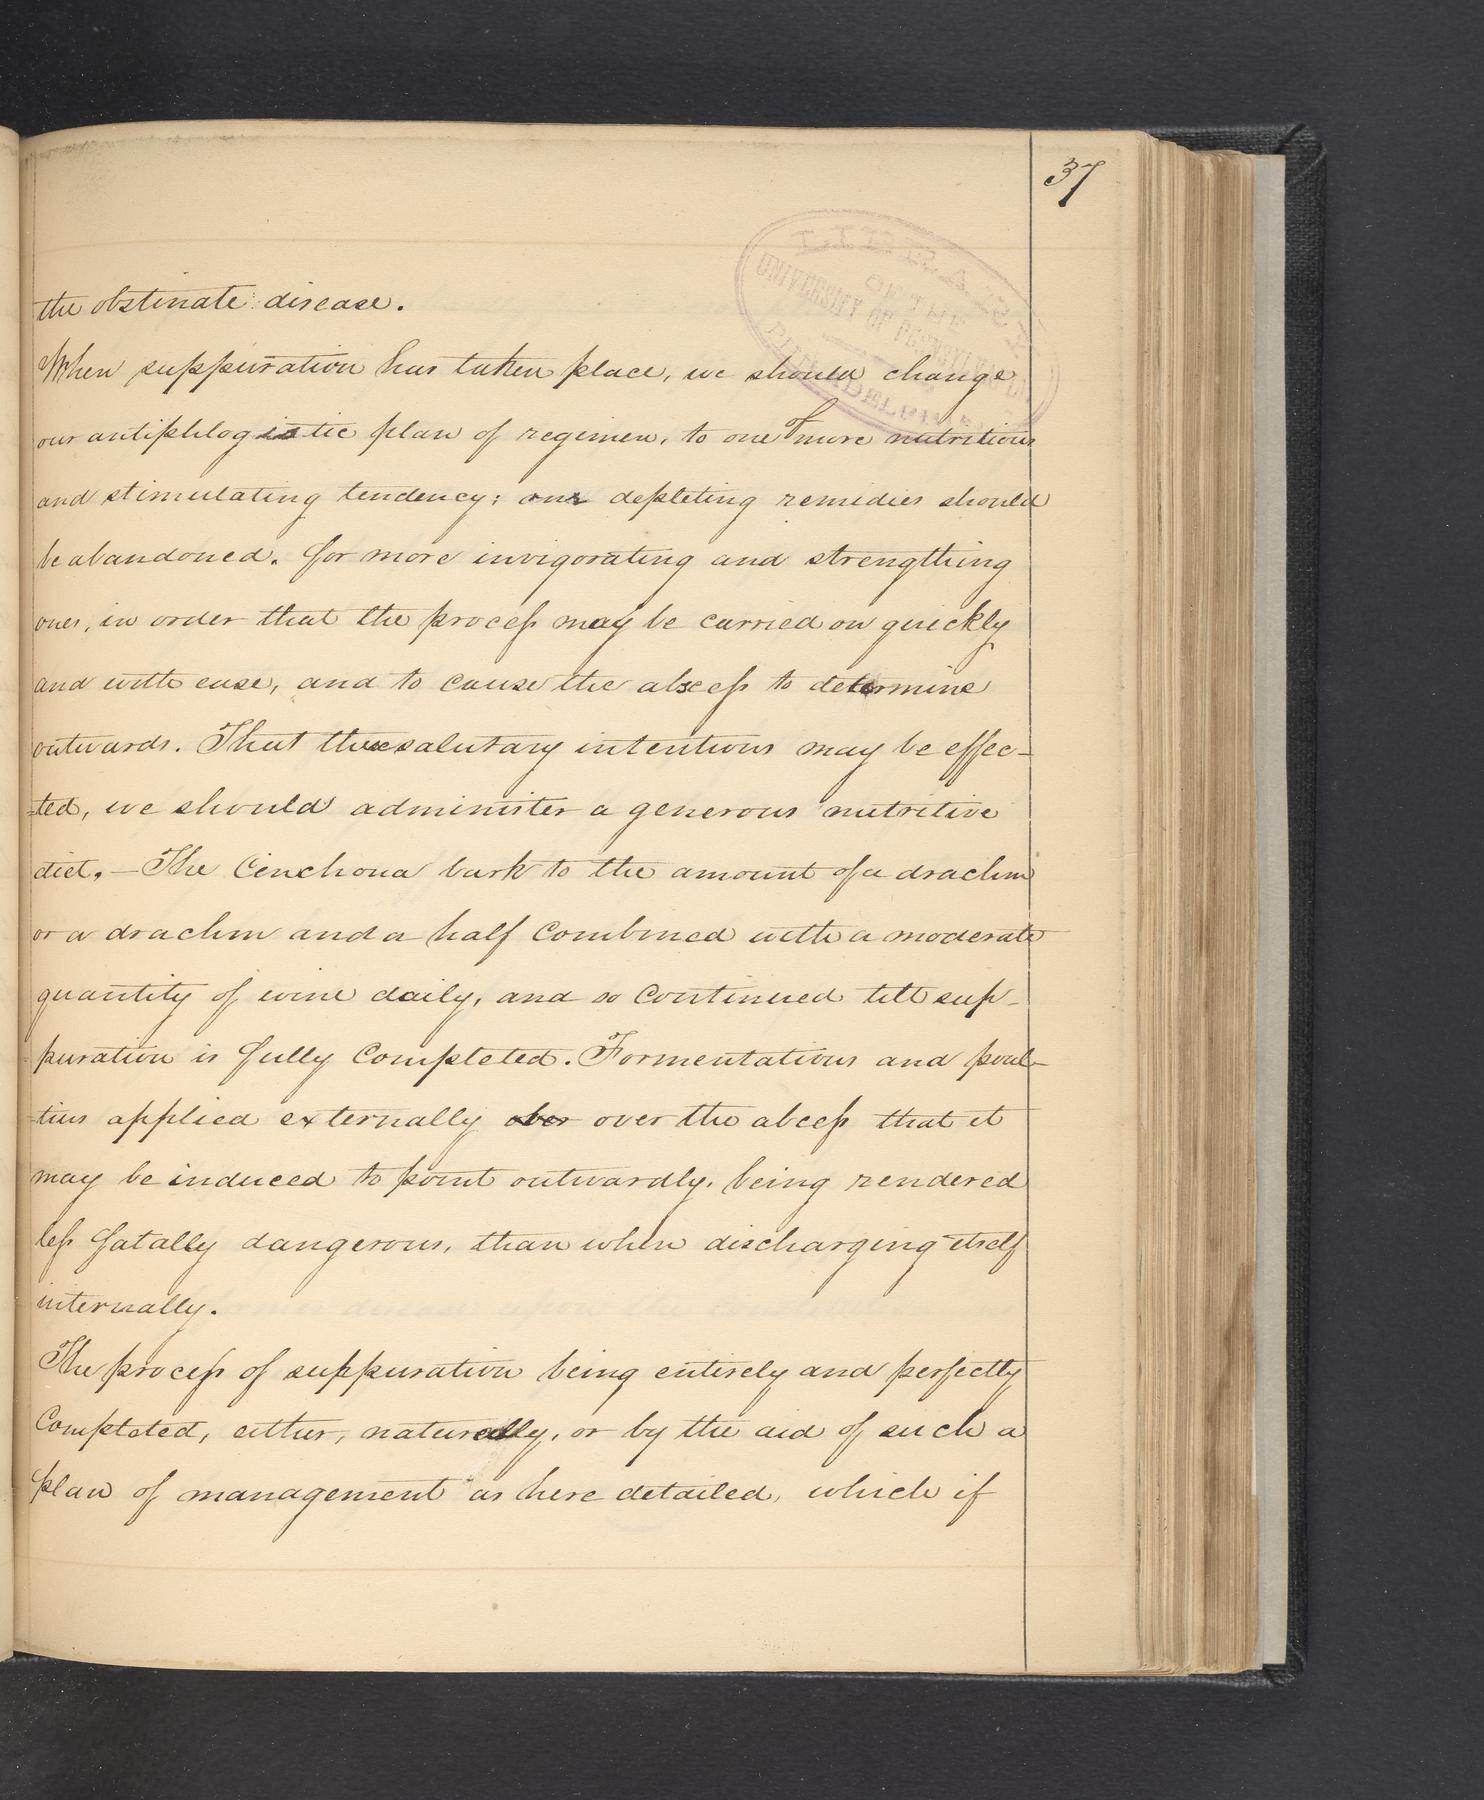 37
the obstinate disease.
When suppuration has taken place, we should change
our antiphlogistic plan of regimen, to one of more nutritious
and stimulating tendency; our depleting remedies should
be abandoned. for more invigorating and strengthing
ones, in order that the process may be carried on quickly
and with ease, and to cause the abscess to determine
outwards. That these salutary intentions may be effec-
-ted, we should administer a generous nutritive
diet. — The Cinchona bark to the amount of a drachm
or a drachm and a half combined with a moderate
quantity of wine daily, and so continued till sup-
puration is fully completed. Formentations and poul-
-tius applied externally over over the abcess that it
may be induced to point outwardly, being rendered
less fatally dangerous, than when discharging itself
internally.
The process of suppuration being entirely and perfectly
Completed, either, naturally, or by the aid of such a
plan of management as here detailed, which if